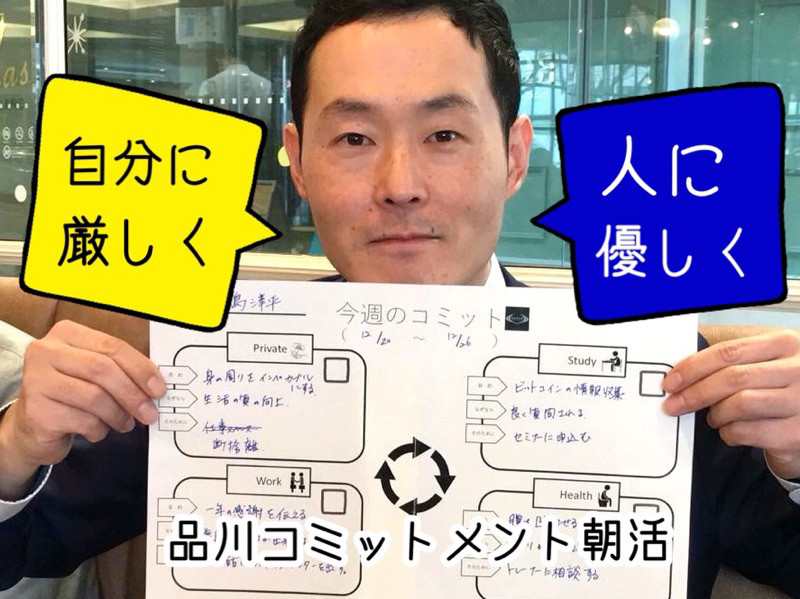 自分に
厳しく
人に
優しく
島洋平
今週のコミット
( 12/20 ～ 12/26 )
Private
目的
身の周りをインペカブル
にする
なぜなら
生活の質の向上
そのために
断捨離
Study
目的
ビットコインの情報収集
なぜなら
良く質問される
そのために
セミナーに申込む
Work
一年の感謝を伝える
Health
そのために
トレーナーに相談する
品川コミットメント朝活